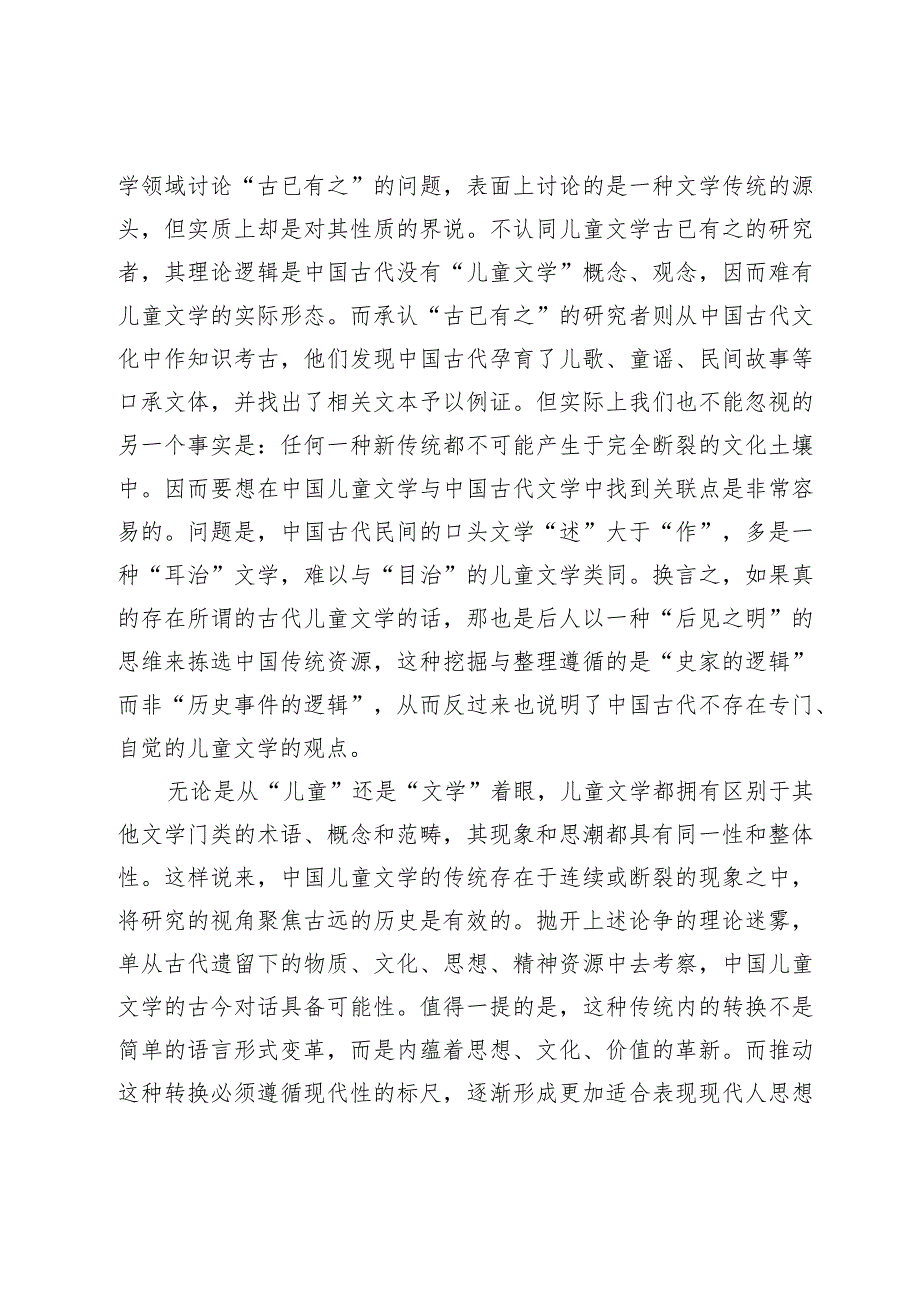 学领域讨论“古已有之”的问题，表面上讨论的是一种文学传统的源
头，但实质上却是对其性质的界说。不认同儿童文学古已有之的研究
者，其理论逻辑是中国古代没有“儿童文学”概念、观念，因而难有
儿童文学的实际形态。而承认“古已有之”的研究者则从中国古代文
化中作知识考古，他们发现中国古代孕育了儿歌、童谣、民间故事等
口承文体，并找出了相关文本予以例证。但实际上我们也不能忽视的
另一个事实是：任何一种新传统都不可能产生于完全断裂的文化土壤
中。因而要想在中国儿童文学与中国古代文学中找到关联点是非常容
易的。问题是，中国古代民间的口头文学“述”大于“作”，多是一
种“耳治”文学，难以与“目治”的儿童文学类同。换言之，如果真
的存在所谓的古代儿童文学的话，那也是后人以一种“后见之明”的
思维来拣选中国传统资源，这种挖掘与整理遵循的是“史家的逻辑”
而非“历史事件的逻辑”，从而反过来也说明了中国古代不存在专门、
自觉的儿童文学的观点。
无论是从“儿童”还是“文学”着眼，儿童文学都拥有区别于其
他文学门类的术语、概念和范畴，其现象和思潮都具有同一性和整体
性。这样说来，中国儿童文学的传统存在于连续或断裂的现象之中，
将研究的视角聚焦古远的历史是有效的。抛开上述论争的理论迷雾，
单从古代遗留下的物质、文化、思想、精神资源中去考察，中国儿童
文学的古今对话具备可能性。值得一提的是，这种传统内的转换不是
简单的语言形式变革，而是内蕴着思想、文化、价值的革新。而推动
这种转换必须遵循现代性的标尺，逐渐形成更加适合表现现代人思想